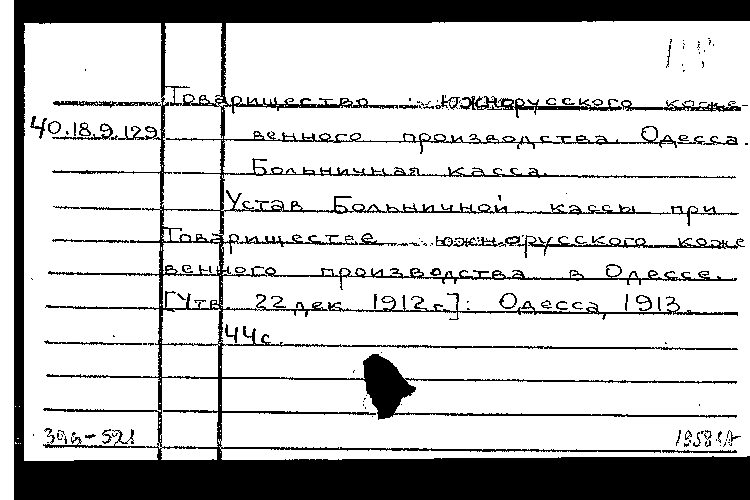 Товарищество южнорусского коже-
40.18.9.129 венного производства. Одесса.
Больничная касса.
Устав Больничной кассы при
Товариществе южнорусского коже
венного производства в Одессе.
[Утв. 22 дек 1912 г.]: Одесса, 1913.
44 с.